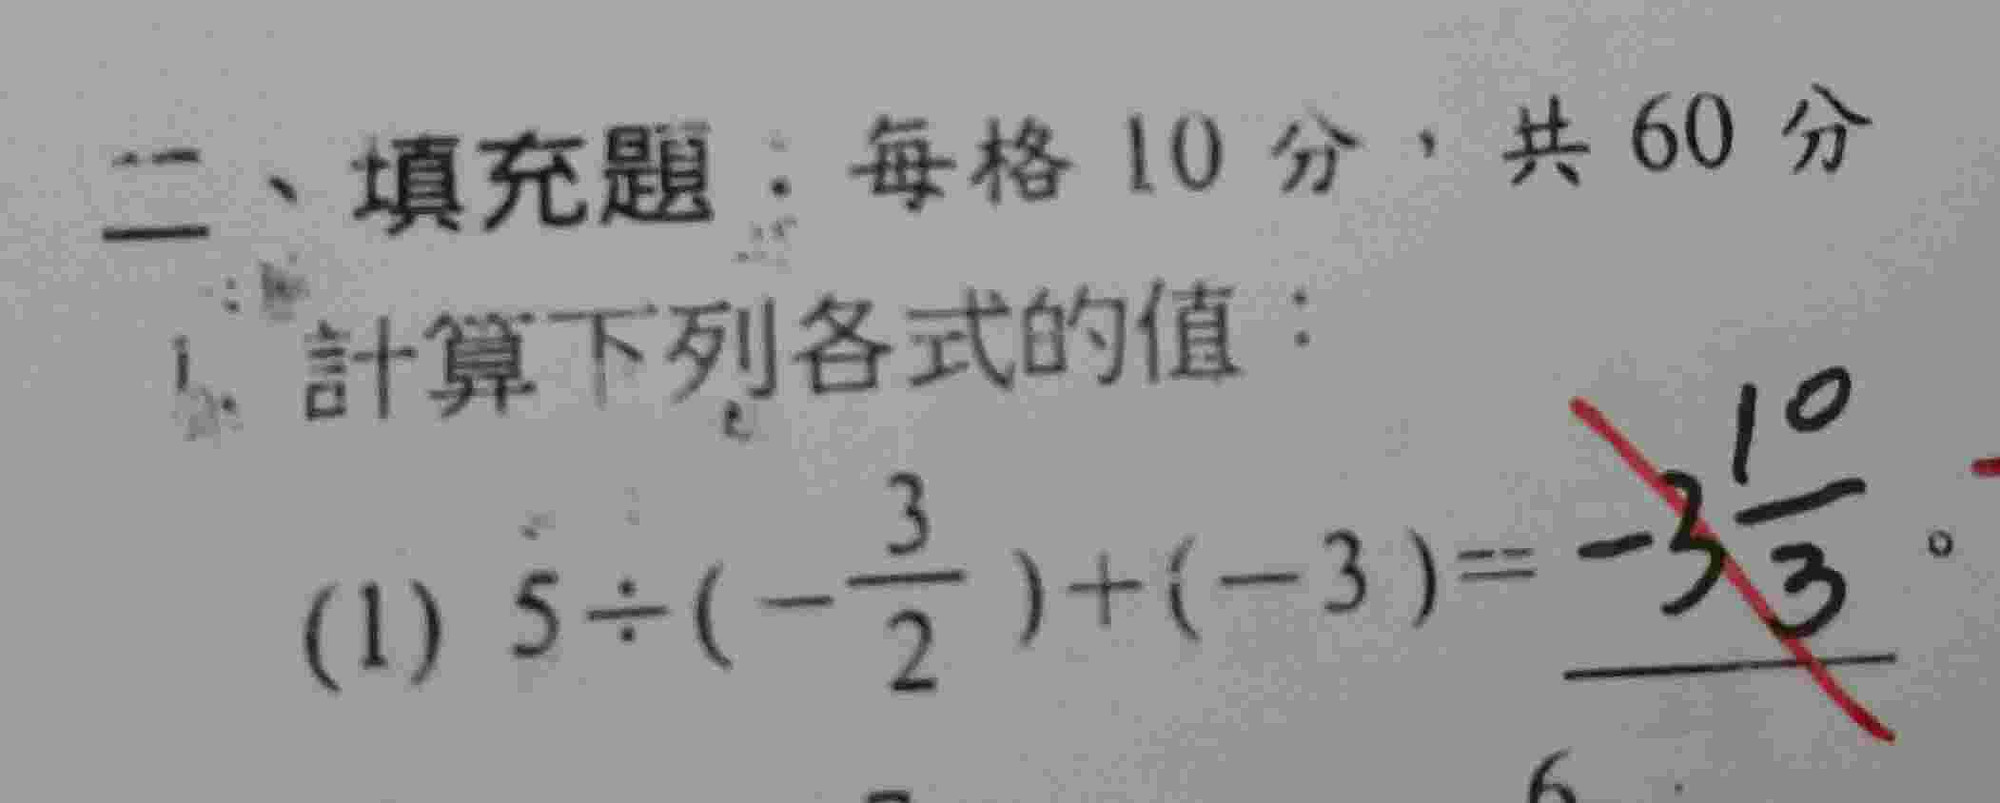 二、填充題：每格 10 分，共 60 分
1. 計算下列各式的值：
(1) 5÷(-3/2)+(-3)=-3 10/3。
6